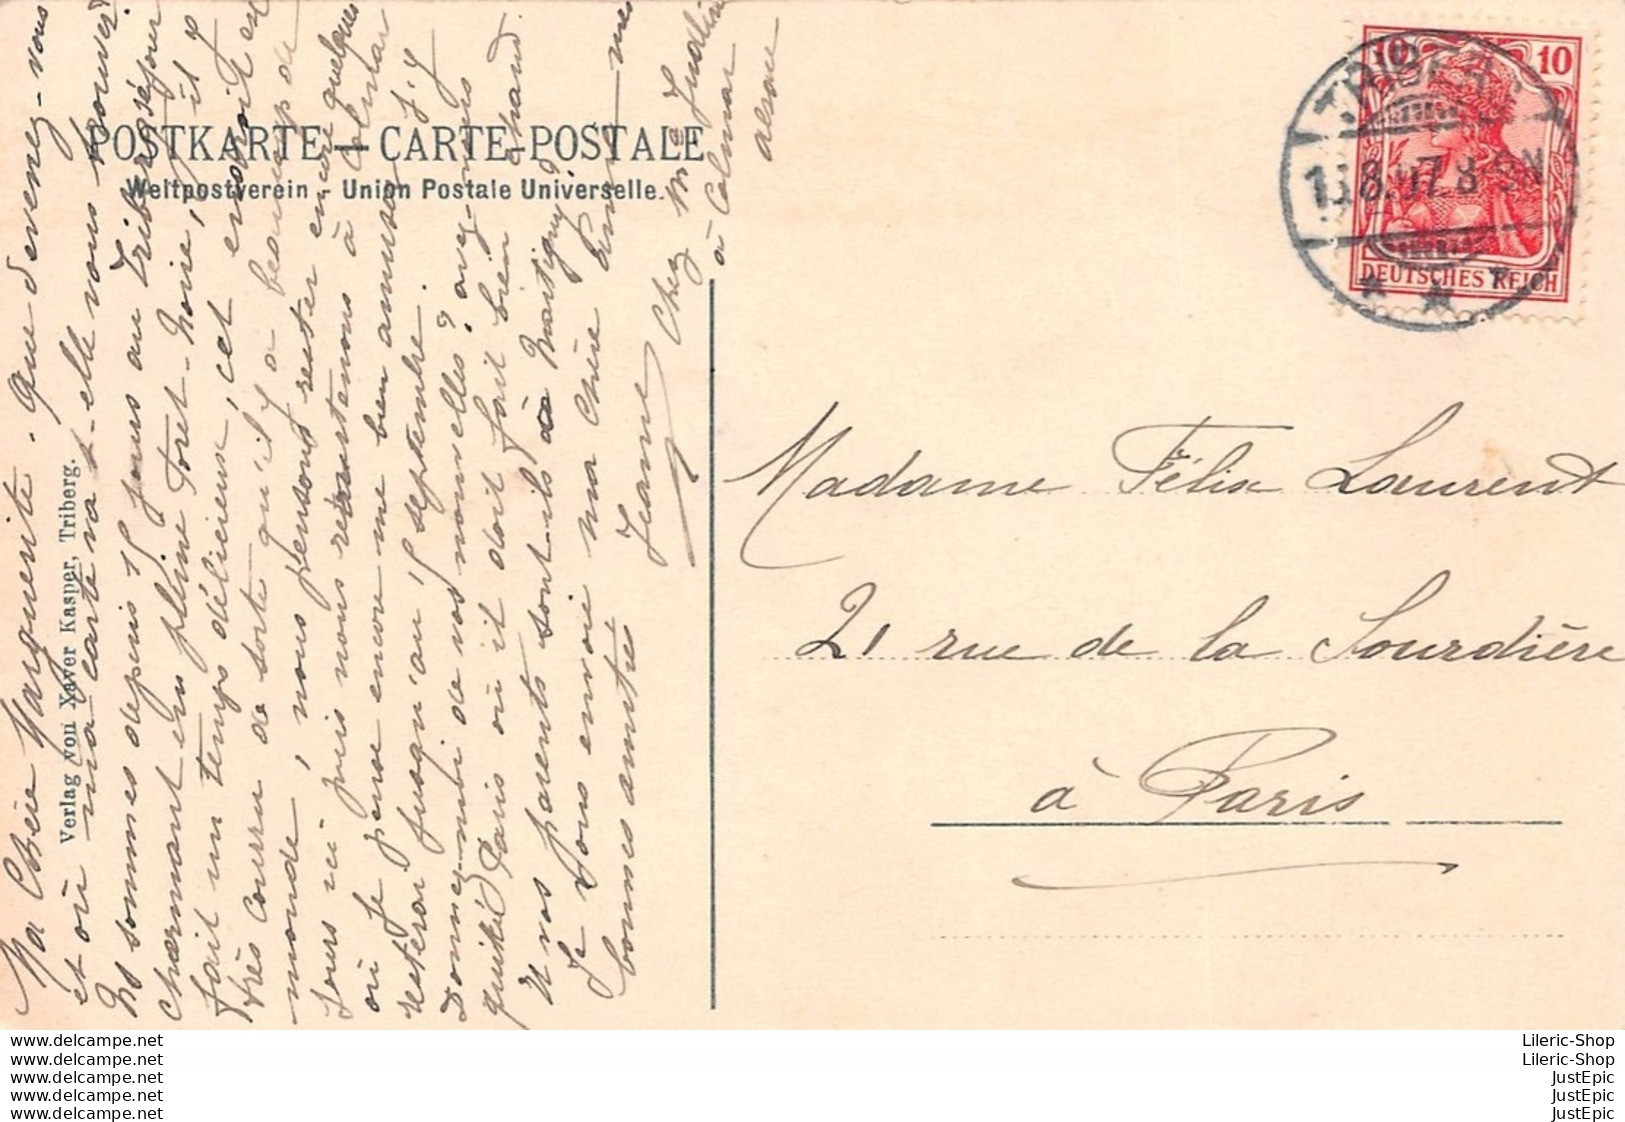 Ma Chère Marguerite. Que devenez-vous
et où ma carte va-t-elle vous trouver?
Ns sommes depuis 15 jours au Triberg, séjour
charmant en pleine Foret-Noire, il y
fait un temps délicieux, cet endroit est
très couru de sorte qu'il y a beaucoup de
monde, nous pensons rester encore quelques
jours ici puis nous retournons à Colmar
où je pense encore me bien amuser. J'y
resterai jusqu'au 15 septembre.
Donnez-moi de vos nouvelles? avez-vous
quitté Paris où il doit faire bien chaud.
Vos parents sont-ils à Martigny?
Je vous envoie ma chère amie mes
bonnes amitiés
Jeanne
Chez Mme
à Colmar
alsace
POSTKARTE — CARTE-POSTALE
Weltpostverein - Union Postale Universelle.
Verlag von Xaver Kasper, Triberg.
10 10
DEUTSCHES REICH
TRIBERG
8.07. 8-9N
Madame Félix Laurent
21 rue de la Sourdière
à Paris
www.delcampe.net
www.delcampe.net
www.delcampe.net
www.delcampe.net
www.delcampe.net
Lileric-Shop
Lileric-Shop
JustEpic
JustEpic
JustEpic